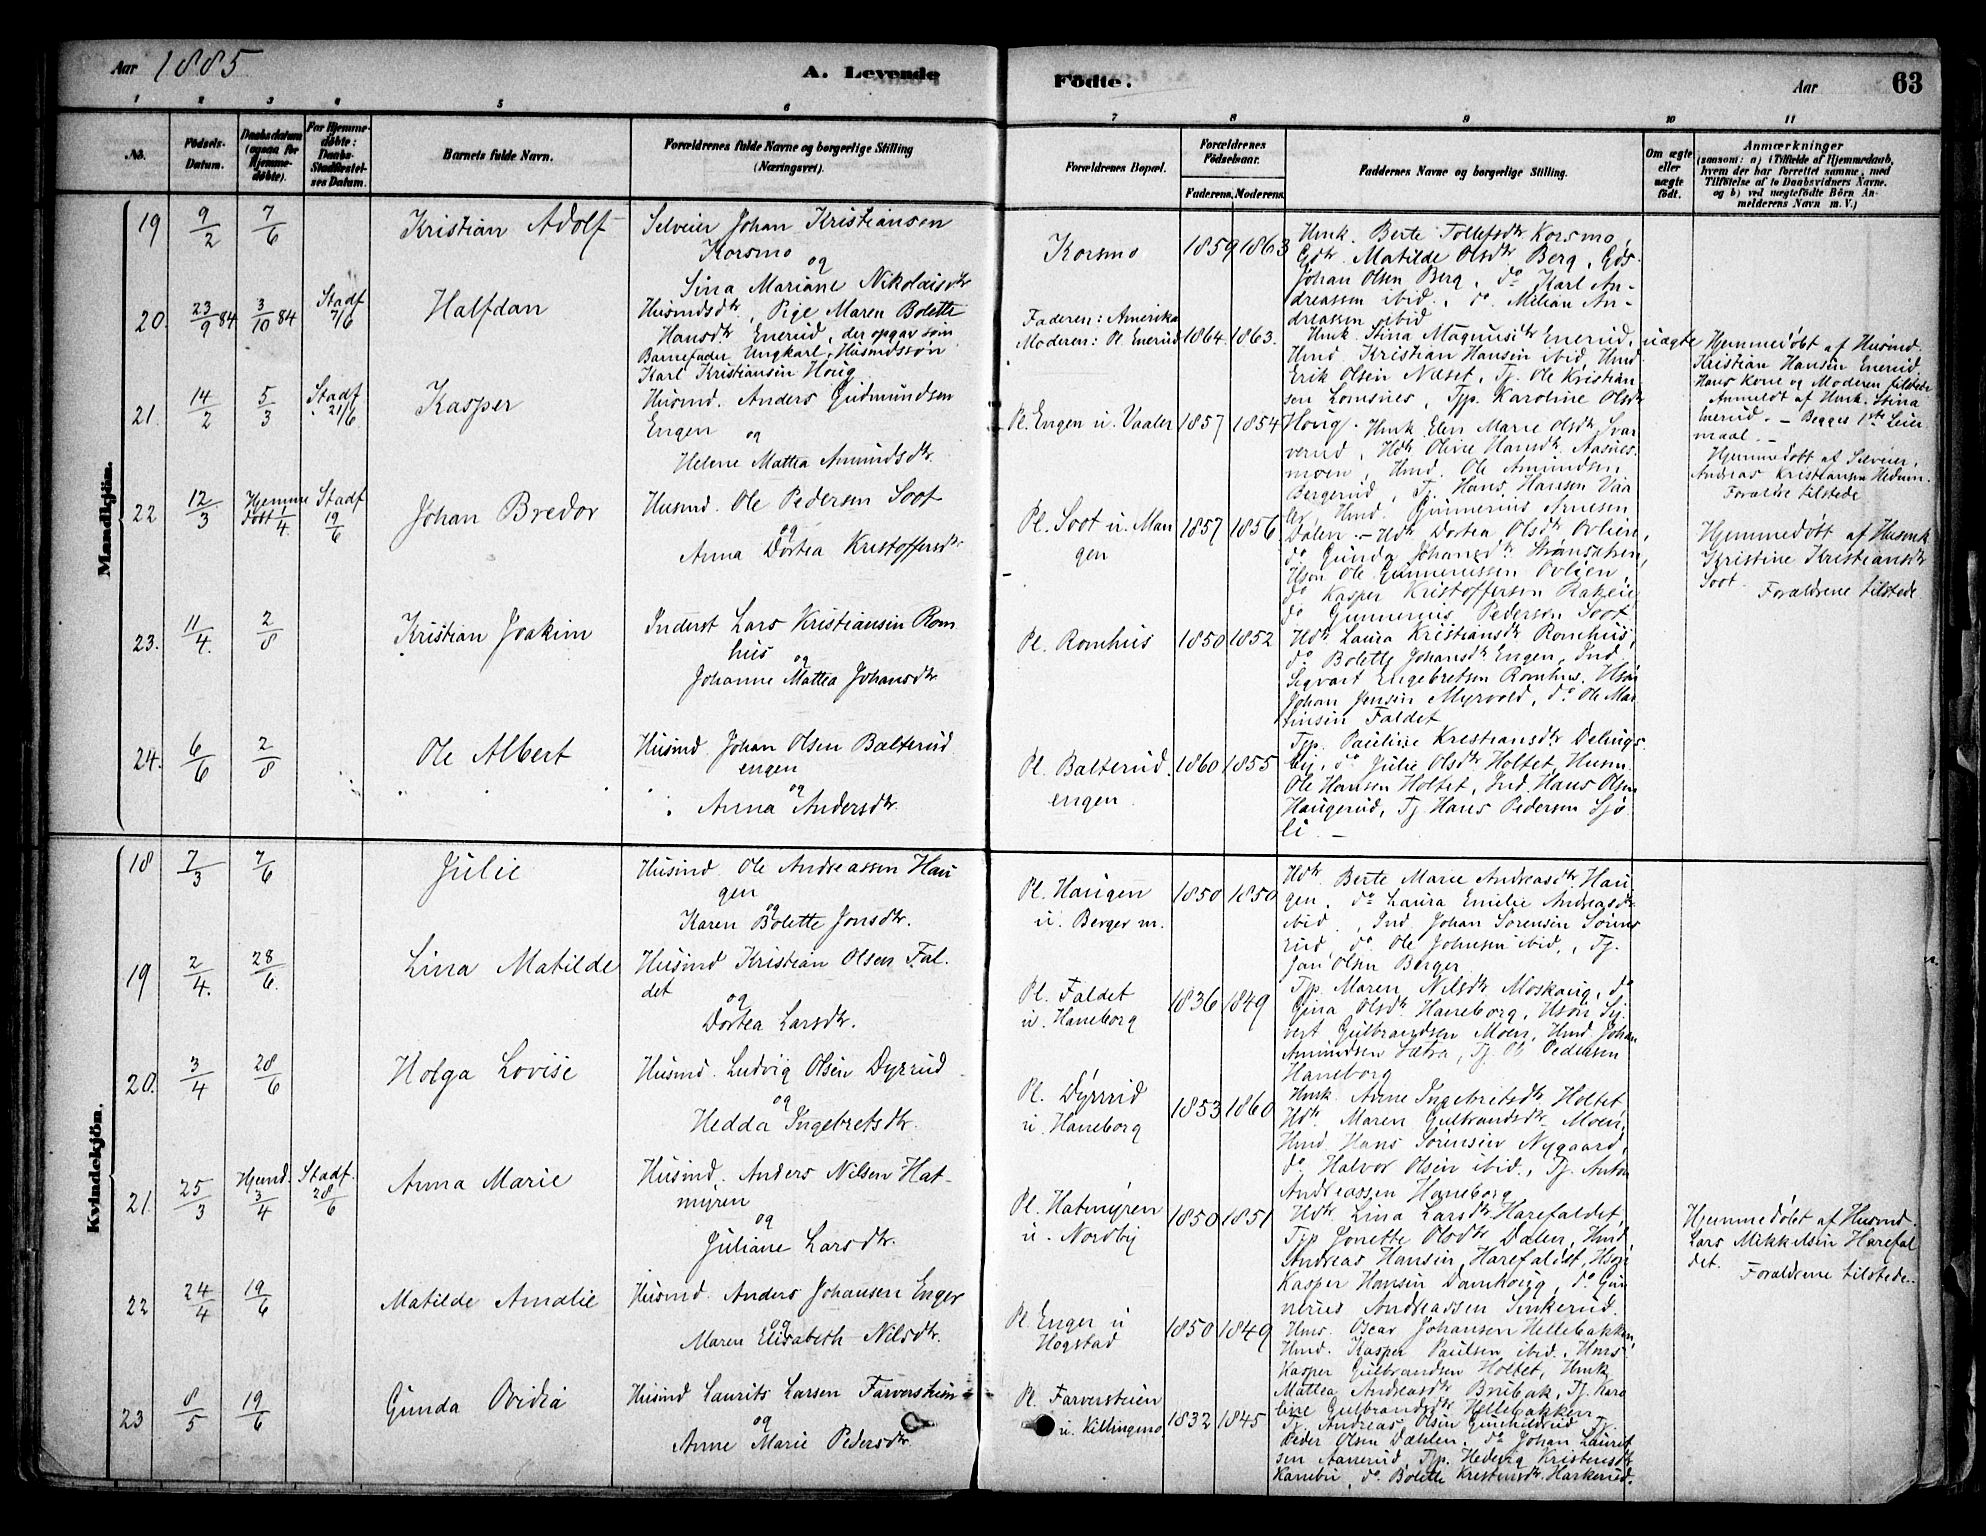 Aar 1885
A. Levende
Födte.
Aar
63
1 2 3 4 5 6 7 8 9 10 11
No.
Födsels-Datum.
Daabsdatum (ogsaa for Hjemmedöbte).
For Hjemmedöbte: Daabs-Stadfæstelses Datum.
Barnets fulde Navn.
Forældrenes fulde Navne og borgerlige Stilling
(Næringsvei).
Forældrenes Bopæl.
Forældrenes Födselsaar.
Faderens. Moderens.
Faddernes Navne og borgerlige Stilling.
Om ægte eller uægte födt.
Anmærkninger
(saasom: a) i Tilfælde af Hjemmedaab,
hvem der har forrettet samme, med
Tilföielse af to Daabsvidners Navne.
og b) ved uægtefödte Börn Anmelderens Navn m. V.)
Mandkjön.
19 9/2 7/6 Kristian Adolf
Selveier Johan Kristiansen
Korsmo
og
Sina Mariane Nikolaisdtr
Korsmo 1859 1863
Hmk. Berte Tollefsdtr Korsmo,
Gdtr. Matilde Olsdtr Berg, Gds.
Johan Olsen Berg, do Karl An-
dreassen ibid., do Milian An-
dreassen ibid
20. 23/9 84 3/10 84 Stadf 7/6 Halfdan
Husmdsdtr, Pige Maren Bolette
Hansdtr Enerud, der opgav som
Barnefader Ungkarl, Husmdssøn
Karl Kristiansen Houg
Faderen: Amerika
Moderen: Pl. Enerud 1864. 1863.
Hmk. Stina Magnusdtr Enerud,
Hmd. Kristian Hansen ibid Hmd
Erik Olsen Næset, Tj. Ole Kristian-
sen Lomsnes, Tjp. Karoline Olsdtr
Houg.
uægte
Hjemmedöbt af Husmd.
Kristian Hansen Enerud.
Hans Kone og Moderen tilstede
Anmeldt af Hmk. Stina
Enerud. — Begges 1ste Leier
maal. —
21. 14/2 5/3 Stadf 21/6 Kasper
Husmd. Anders Gudmundsen
Engen og
Helene Mattea Amundsdtr.
Pl. Engen u. Vaaler 1857 1854
Hmk Elen Marie Olsdtr Svar
verud, Hdtr Olive Hansdtr Aasnes
moen, Hmd. Ole Amundsen,
Bergerud, Tj. Hans Hansen Vaa
ler, Hmd. Gunnerius Arnesen
Dalen. —
Hjemmedöbt af Selveier,
Andreas Kristiansen Hedum.
Forældre tilstede
22 12/3 Hjemme döbt 1/4. Stadf 19/6 Johan Bredor
Husmd. Ole Pedersen Soot
og
Anna Dortea Kristoffersdtr.
Pl. Soot u. Man
gen
1857 1856
Hdtr Dortea Olsdtr Ovlien,
do Gunda Johansdtr Strønsætren,
Hson Ole Gunneriussen Ovlien,
do Kasper Kristoffersen
do Gunnerius Pedersen Soot
Hjemmedöbt af Husmk
Kristine Kristiansdtr
Soot. Forældrene tilstede.
23. 11/4. 2/8 Kristian Joakim
Inderst Lars Kristiansen Rom
hus og
Johanne Mattea Johansdtr
Pl. Romhus 1850 1852
Hdtr Laura Kristiansdtr Romhus,
do Bolette Johansdtr Engen, Ind
Sigvart Engebretsen Romhus, Hson
Johan Jensen Myrvold, do Ole Mar
tinsen Faldet
24. 6/6 2/8 Ole Albert
Husmd. Johan Olsen Balterud
engen
og
Anna Andersdtr.
Pl. Balterud.
engen.
1860 1855
Tjp. Pauline Kristiansdtr Delings
by, do Julie Olsdtr Holtet, Husm.
Ole Hansen Holtet, Ind. Hans Olsen
Haugerud, Tj. Hans Pedersen Sjø
li. —
Kvindekjön.
18 7/3 7/6 Julie
Husmd Ole Andreassen Hau
gen og
Karen Bolette Jonsdtr.
Pl. Haugen
u. Berger m.
1850 1850
Hdtr. Berte Marie Andreasdtr Hau
gen, do Laura Emelie Andreasdtr
ibid., Ind Johan Sorensen
rud, do Ole Johnsen ibid., Tj.
Jan Olsen Berger
19 2/4. 28/6. Lina Matilde
Husmd Kristian Olsen Fal.
det
og
Dortea Larsdtr.
Pl. Faldet
u. Haneborg
1836 1849
Tjp. Maren Nilsdtr Moskaug, do
Gina Olsdtr Haneborg, Hson Sy.
vert Gulbrandsen Moen, Hmd Johan
Amundsen Sætra, Tj. Ol. Pedersen
Haneborg
20. 3/4 28/6 Holga Lovise
Husmd. Ludvig Olsen Dyrrud
og
Hedda Ingebretsdtr.
Pl. Dyrrud
u. Haneborg
1853 1860
Hmk. Anne Ingebretsdtr Holtet,
Hdtr. Maren Gulbrandsdtr Moen,
Hmd Hans Sörensen Nygaard,
do Halvor Olsen ibid., Tj. Anton
Andreassen Haneborg
21. 25/3 Hjemd. 3/4 Stadf. 28/6 Anna Marie
Husmd. Anders Nilsen Hat-
myren
og
Juliane Larsdtr.
Pl. Hatmyren
u. Nordby
1850 1851
Hdtr. Lina Larsdtr Harefaldet,
Tjp Jonette Olsdtr Dalen, Hmd.
Andreas Hansen, Harefaldet, Hson
Kasper Hansen Damhoug, do Gun
nerius Andreassen Sinkerud.
Hjemmedöbt af Husmd.
Lars Mikkelsen Harefal
det. Forældrene tilstede.
22 24/4 19/6 Matilde Amalie
Husmd. Anders Johansen Enger
og
Maren Elisabeth Nilsdtr.
Pl. Enger u
Hogstad
1850 1849
Hms. Oscar Johansen Hellebakken,
Hmd. Kasper Paulsen ibid, Hms
Kasper Gulbrandsen Holtet, Hmk
Mattea Andreasdtr Brubak, Tj. Karo
line Gulbrandsdtr Hellebakken
23 8/5 19/6 Gunda Ovidia
Husmd Laurits Larsen Farverstuen
og
Anne Marie Pedersdtr.
Pl. Farverstuen
u. Killingmo
1832 1845
Tj. Andreas Olsen Gunhildrud Tj.
Peder Olsen Dæhlen, do Johan Laurit
sen Aanerud, Tjp. Hedevig Kristensdtr
Kanebu, do Bolette Kristensdtr Harkerud.